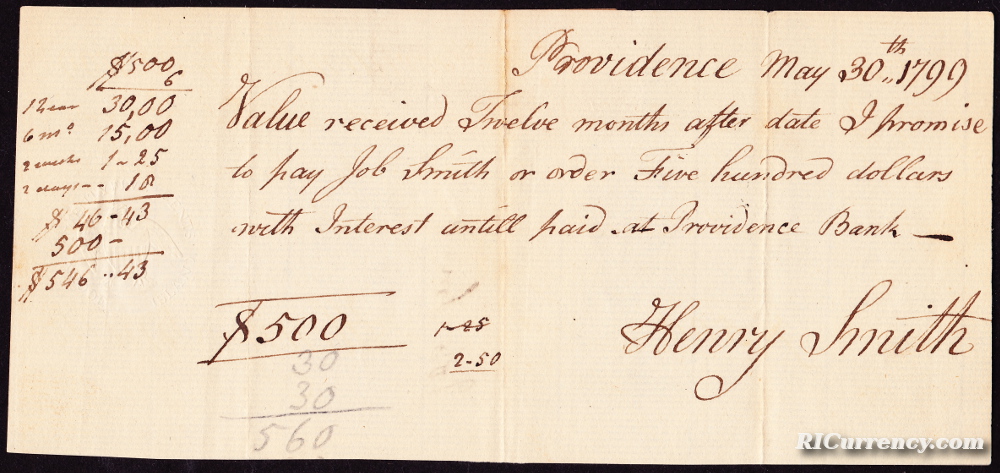 Providence May 30th 1799
Value received Twelve months after date I promise
to pay Job Smith or order Five hundred dollars
with Interest untill paid at Providence Bank —
Henry Smith
$500
6
1 Year 30,00
6 mo 15,00
2 weeks 1-25
2 days -- 18
$46-43
500-
$546--43
$500
30
30
560
1-25
2-50
RICurrency.com